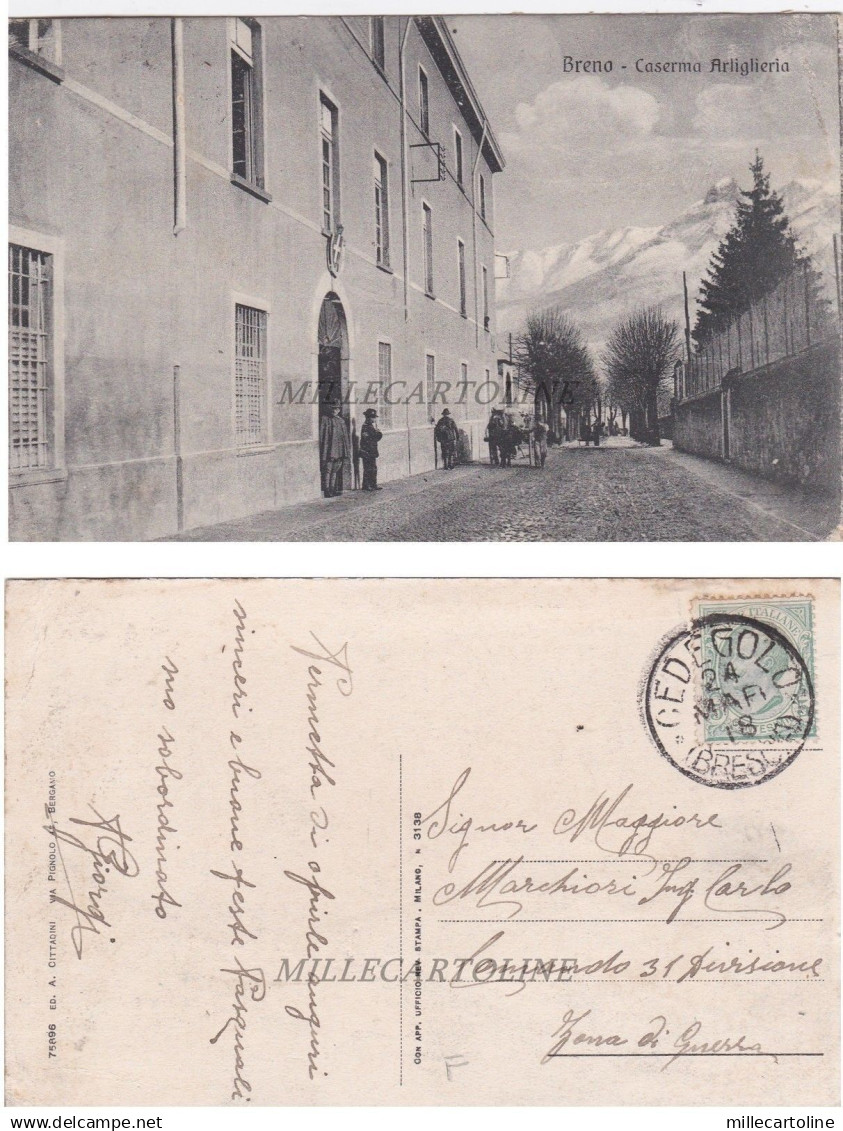 Breno - Caserma Artiglieria
MILLECARTOLINE
ITALIANE
CEDEGOLO
24
MAR
18
(BRESCIA)
Permetta di
auguri
sinceri e buone feste Pasquali
suo sobordinato
A Giorgi
Signor Maggiore
Marchiori Ing. Carlo
Comando 31 Divisione
Zona di Guerra
MILLECARTOLINE
75896 ED. A. CITTADINI VIA PIGNOLO BERGANO
CON APP. UFFICIO REV. STAMPA. MILANO, N 3138
www.delcampe.net
millecartoline